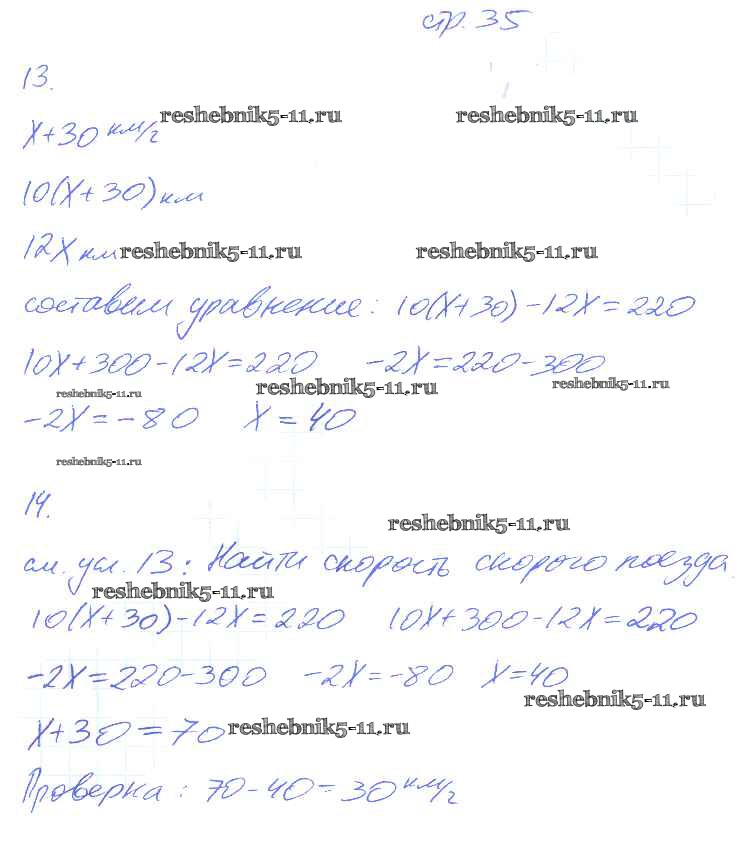 стр. 35
13.
x+30 км/г reshebnik5-11.ru reshebnik5-11.ru
10(x+30) км
12x км reshebnik5-11.ru reshebnik5-11.ru
составим уравнение: 10(x+30)-12x=220
10x+300-12x=220 -2x=220-300
reshebnik5-11.ru reshebnik5-11.ru reshebnik5-11.ru
-2x=-80 x=40
reshebnik5-11.ru
14.
reshebnik5-11.ru
см. усл. 13: Найти скорость скорого поезда.
reshebnik5-11.ru
10(x+30)-12x=220 10x+300-12x=220
-2x=220-300 -2x=-80 x=40
reshebnik5-11.ru
x+30=70 reshebnik5-11.ru
Проверка: 70-40=30 км/г